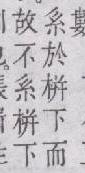 數
系於栟下而
故不系栟下